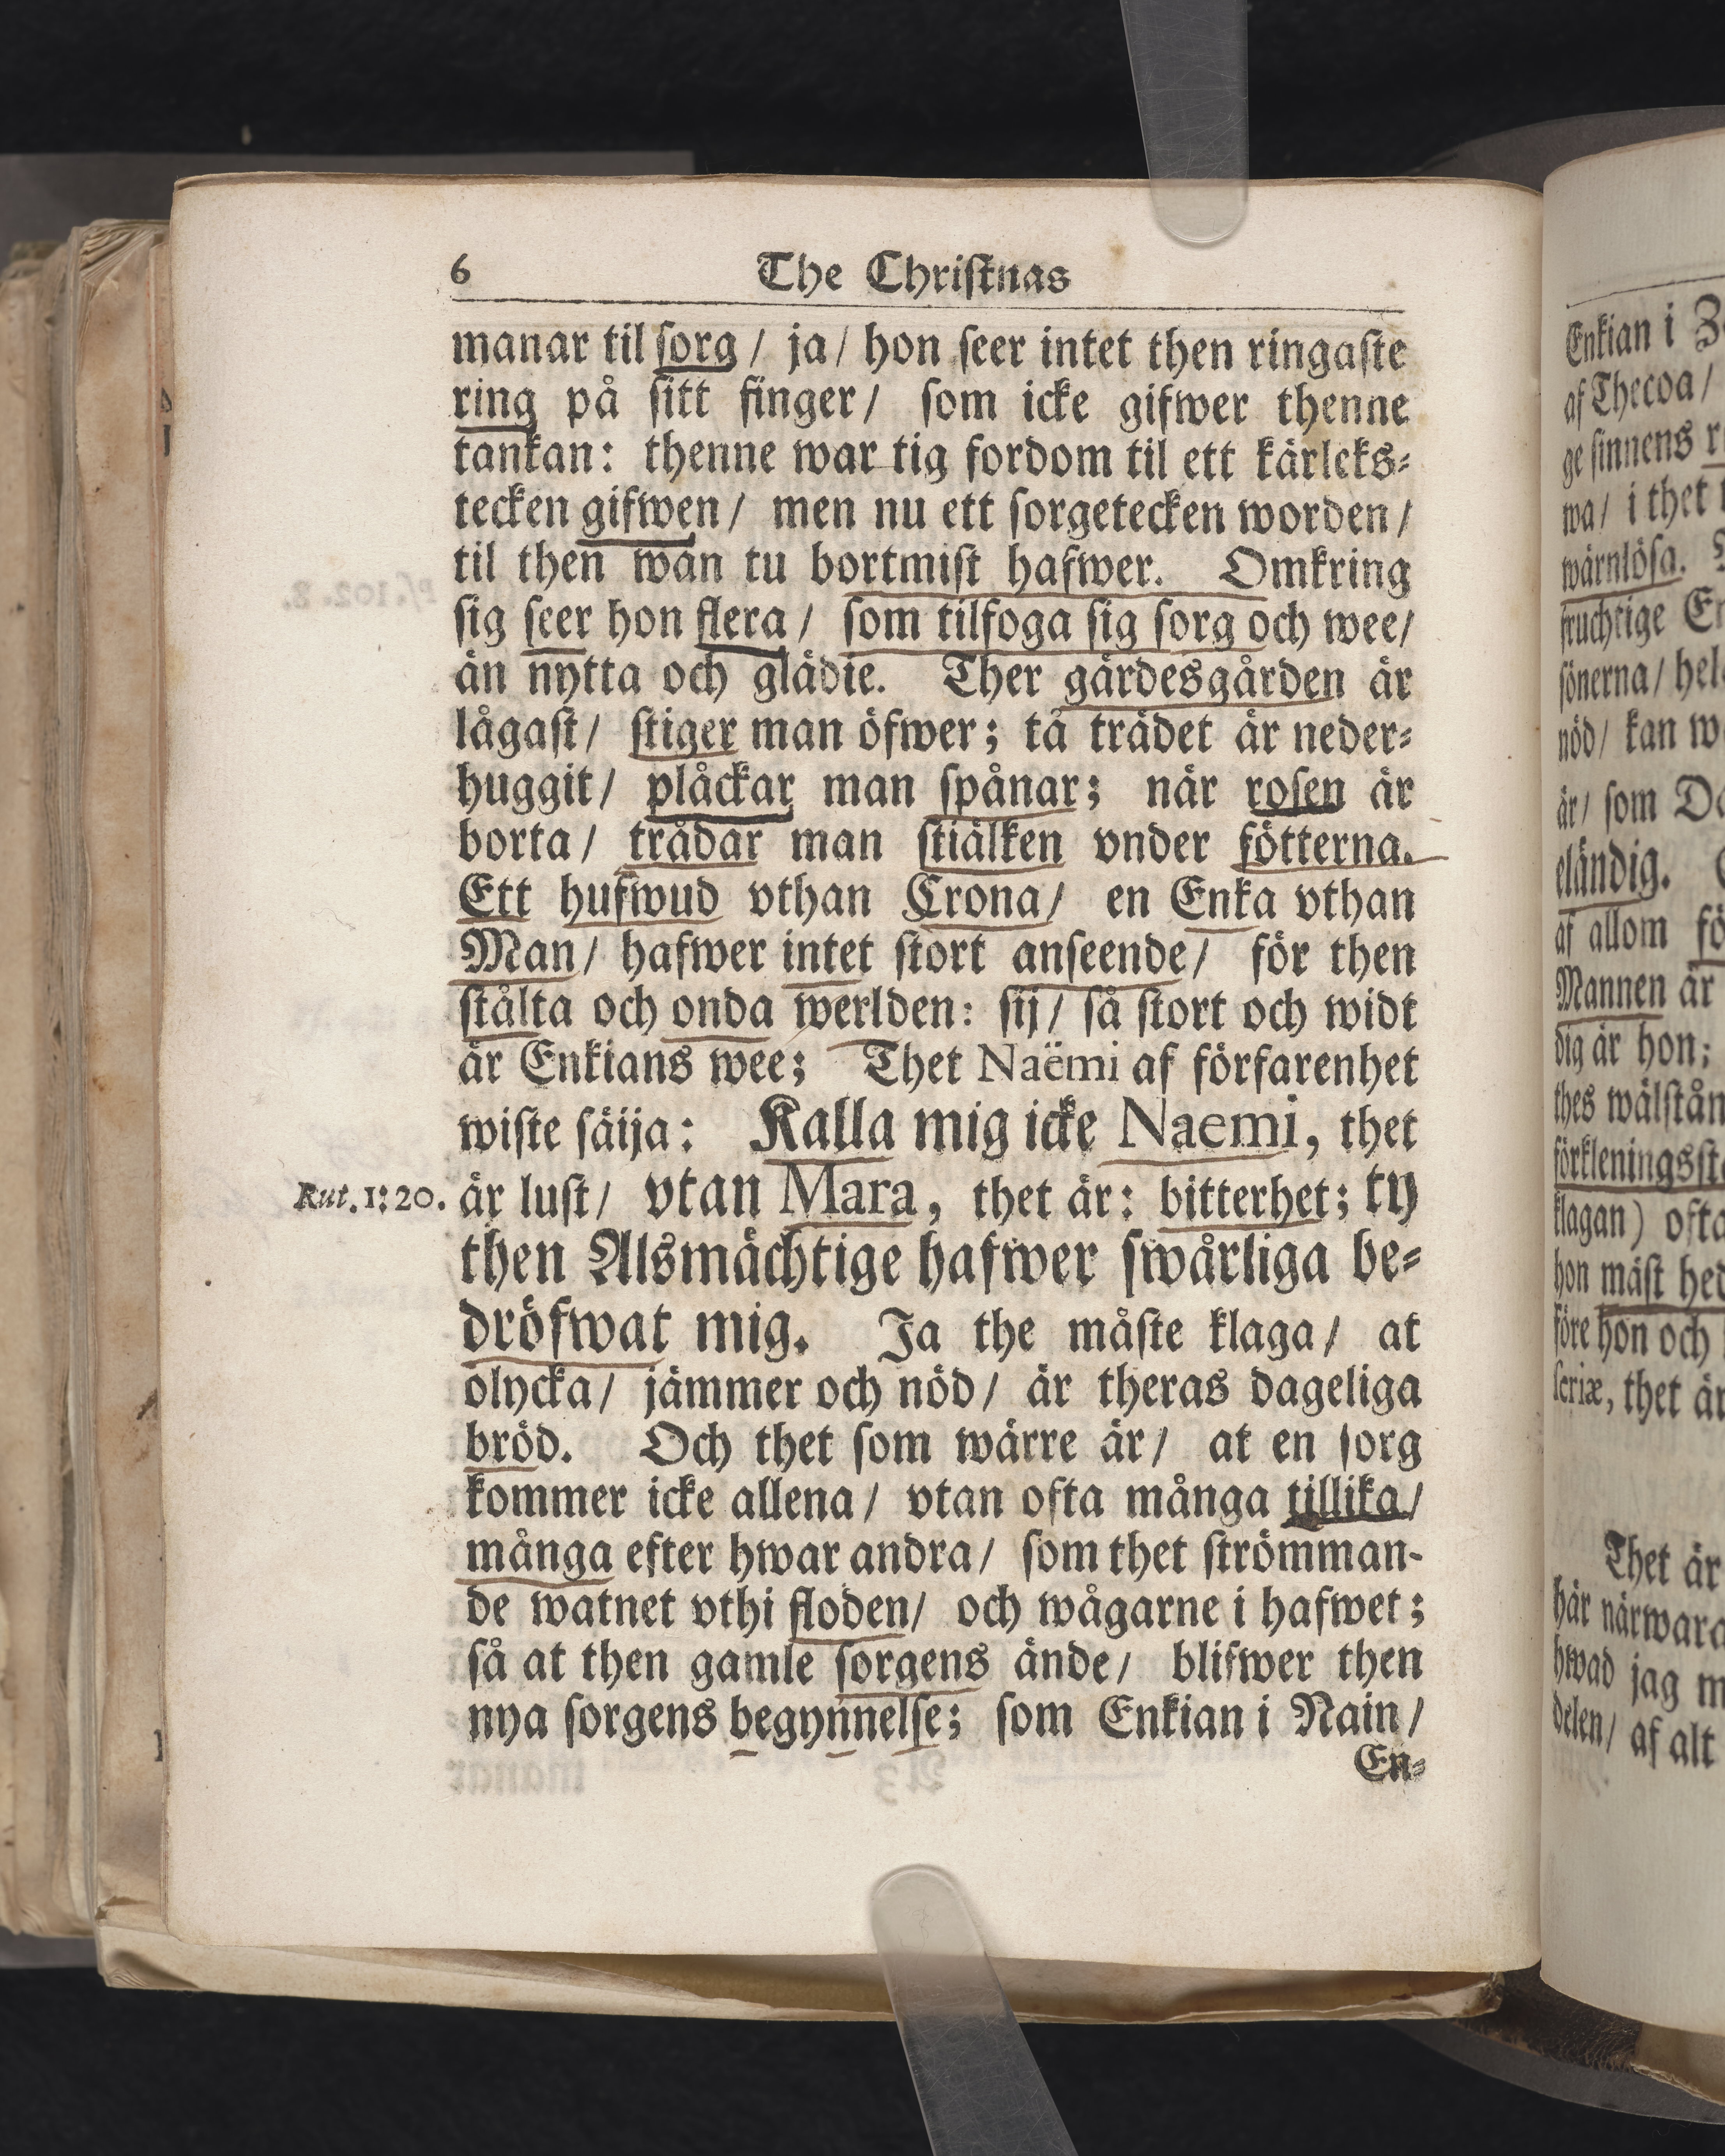 6 The Christnas
manar til sorg / ja / hon seer intet then ringaste
ring på sitt finger / som icke gifwer thenne
tankan: thenne war tig fordom til ett kärleks⸗
tecken gifwen / men nu ett sorgetecken worden /
til then wän tu bortmist hafwer. Omkring
sig seer hon flera / som tilfoga sig sorg och wee /
än nytta och glädie. Ther gärdesgården är
lågast / stiger man öfwer; tå trädet är neder⸗
huggit / plåckar man spånar; när rosen är
borta / trådar man stiälken vnder fötterna.
Ett hufwud vthan Crona / en Enka vthan
Man / hafwer intet stort anseende / för then
stålta och onda werlden: sij / så stort och widt
är Enkians wee; Thet Naëmi af förfarenhet
wiste säija: Kalla mig icke Naemi, thet
Rut. 1: 20. är lust / vtan Mara, thet är: bitterhet; ty
then Alsmächtige hafwer swårliga be⸗
dröfwat mig. Ja the måste klaga / at
olycka / jämmer och nöd / är theras dageliga
bröd. Och thet som wärre är / at en sorg
kommer icke allena / vtan ofta många tillika /
många efter hwar andra / som thet strömman-
de watnet vthi floden / och wågarne i hafwet;
så at then gamle sorgens ände / blifwer then
nya sorgens begynnelse; som Enkian i Nain /
En⸗
Enkian i
af Thecoa /
ge sinnens
wa / i thet
wärnlösa.
fruchtige
sönerna /
nöd / kan
är / som
eländig.
af allom
Mannen är
dig är hon;
thes
klagan) ofta
hon mäst
före hon och
thet är
Thet är
här
hwad jag
delen / af alt